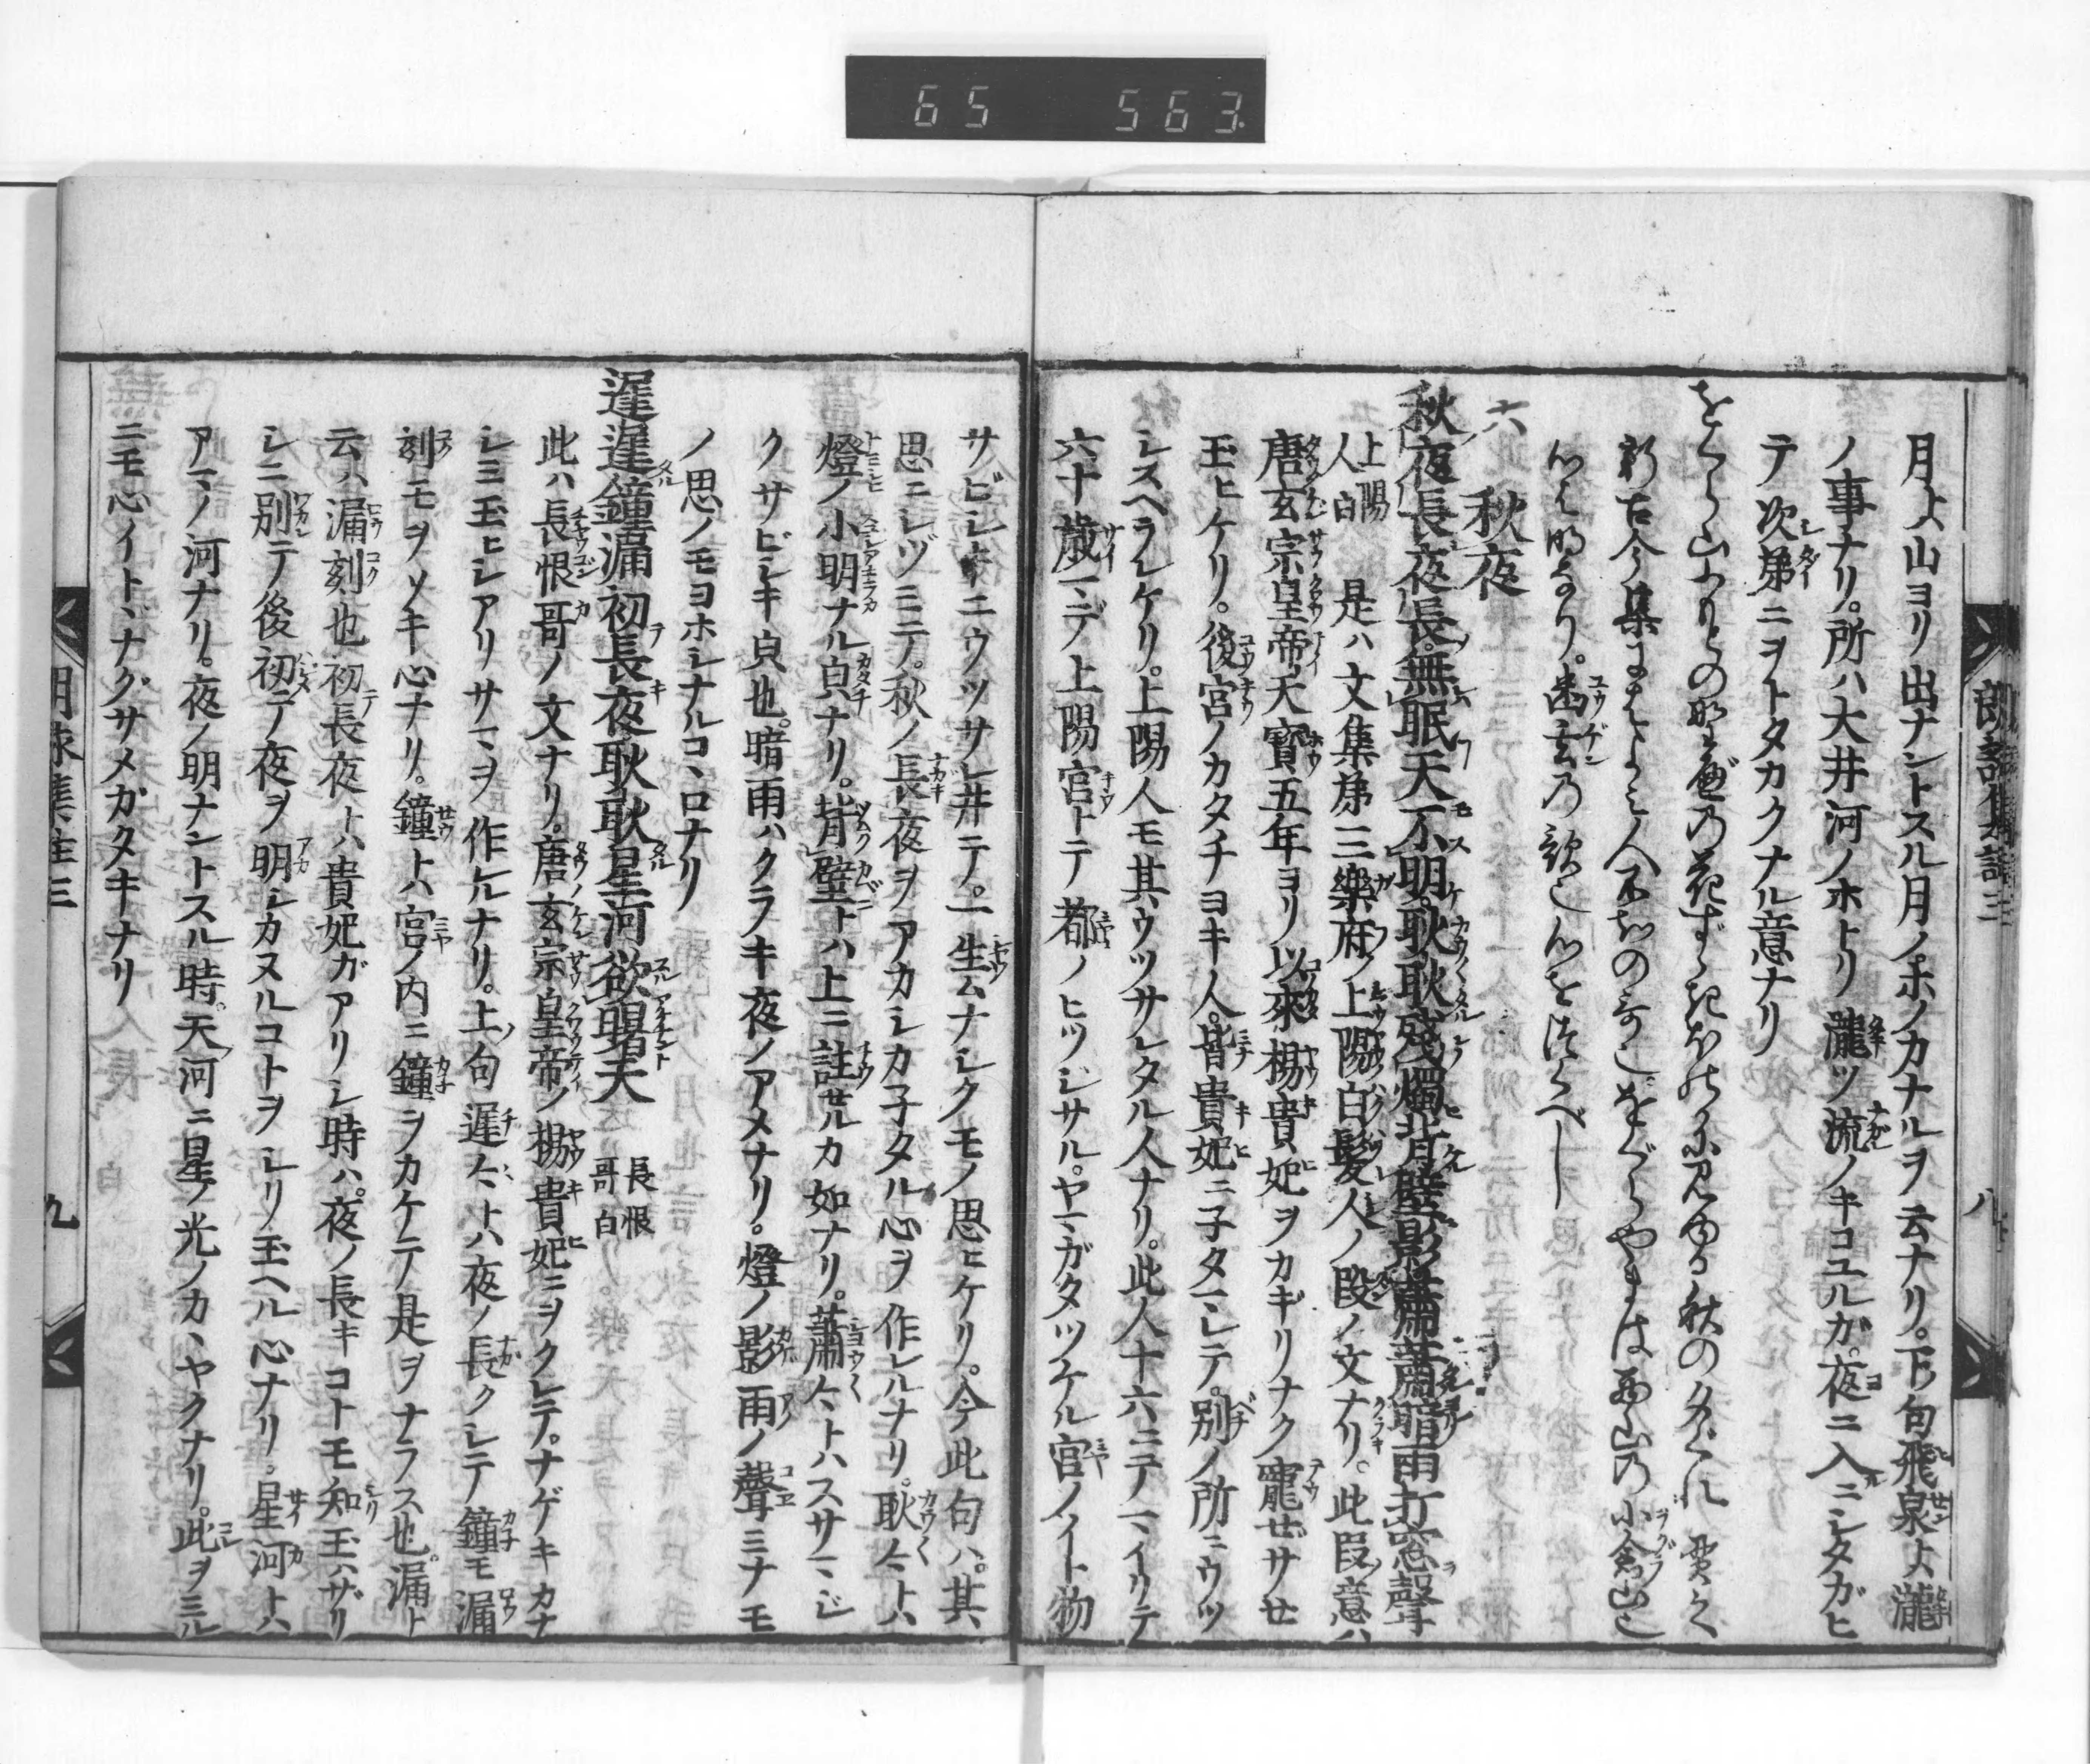 65 563
朗詠集註三
八
月ト山ヨリ出ナントスル月ノホノカナルヲ云ナリ。下句飛泉ト瀧
ノ事ナリ。所ハ大井河ノホトリ瀧ツ流ノキコユルガ。夜ニ入ニシタガヒ
テ次第ニヲトタカクナル意ナリ
をぐら山ふもとの野邊の花すゝきほのかに見ゆる秋の夕ぐれ
新古今集によみ人不知の
心は明なり。幽玄の歌也心を
六 秋夜
秋夜長夜長無眠天不明耿耿殘燭背壁影蕭蕭暗雨打窓聲
上陽人白 是ハ文集第三樂府ノ上陽白髮人ノ段ノ文ナリ。此段ノ意ハ
唐玄宗皇帝天寶五年ヨリ以來楊貴妃ヲカギリナク寵ゼサセ
玉ヒケリ。後宮ノカタチヨキ人。皆貴妃ニ子タマレテ。別ノ所ニウツ
レスヘラレケリ。上陽人モ其ウツサレタル人ナリ。此人十六ニテマイリテ
六十歳マデ上陽宮トテ都ノヒツジサル。ヤマガタツケル宮ノイト物
サビシキニウツサレ井テ。一生ムナシクモノ思ヒケリ。今此句ハ。其
思ニシヅミテ。秋ノ長夜ヲアカシカ子タル心ヲ作レルナリ。耿々トハ
燈ノ小明ナル皃ナリ。背壁トハ上ニ註セルカ如ナリ。蕭々トハスサマシ
クサビシキ皃也。暗雨ハクラキ夜ノアメナリ。燈ノ影雨ノ聲ミナモ
ノ思ノモヨホシナルコヽロナリ
遲遲鐘漏初長夜耿耿星河欲曙天 長恨哥白
此ハ長恨哥ノ文ナリ。唐玄宗皇帝ノ楊貴妃ニヲクレテ。ナゲキカナ
シミ玉ヒシアリサマヲ作レルナリ。上ノ句遲々トハ夜ノ長クシテ鐘モ漏
刻モヲソキ心ナリ。鐘トハ宮ノ内ニ鐘ヲカケテ是ヲナラス也。漏ト
云ハ漏刻也初長夜トハ貴妃ガアリシ時ハ。夜ノ長キコトモ知玉ハザリ
シニ別テ後初テ夜ヲ明シカヌルコトヲシリ玉ヘル心ナリ。星河トハ
アマノ河ナリ。夜ノ明ナントスル時。天河ニ星ノ光ノカヽヤクナリ。此ヲミル
ニモ心イトヾナグサメガタキナリ
朗詠集註三
九